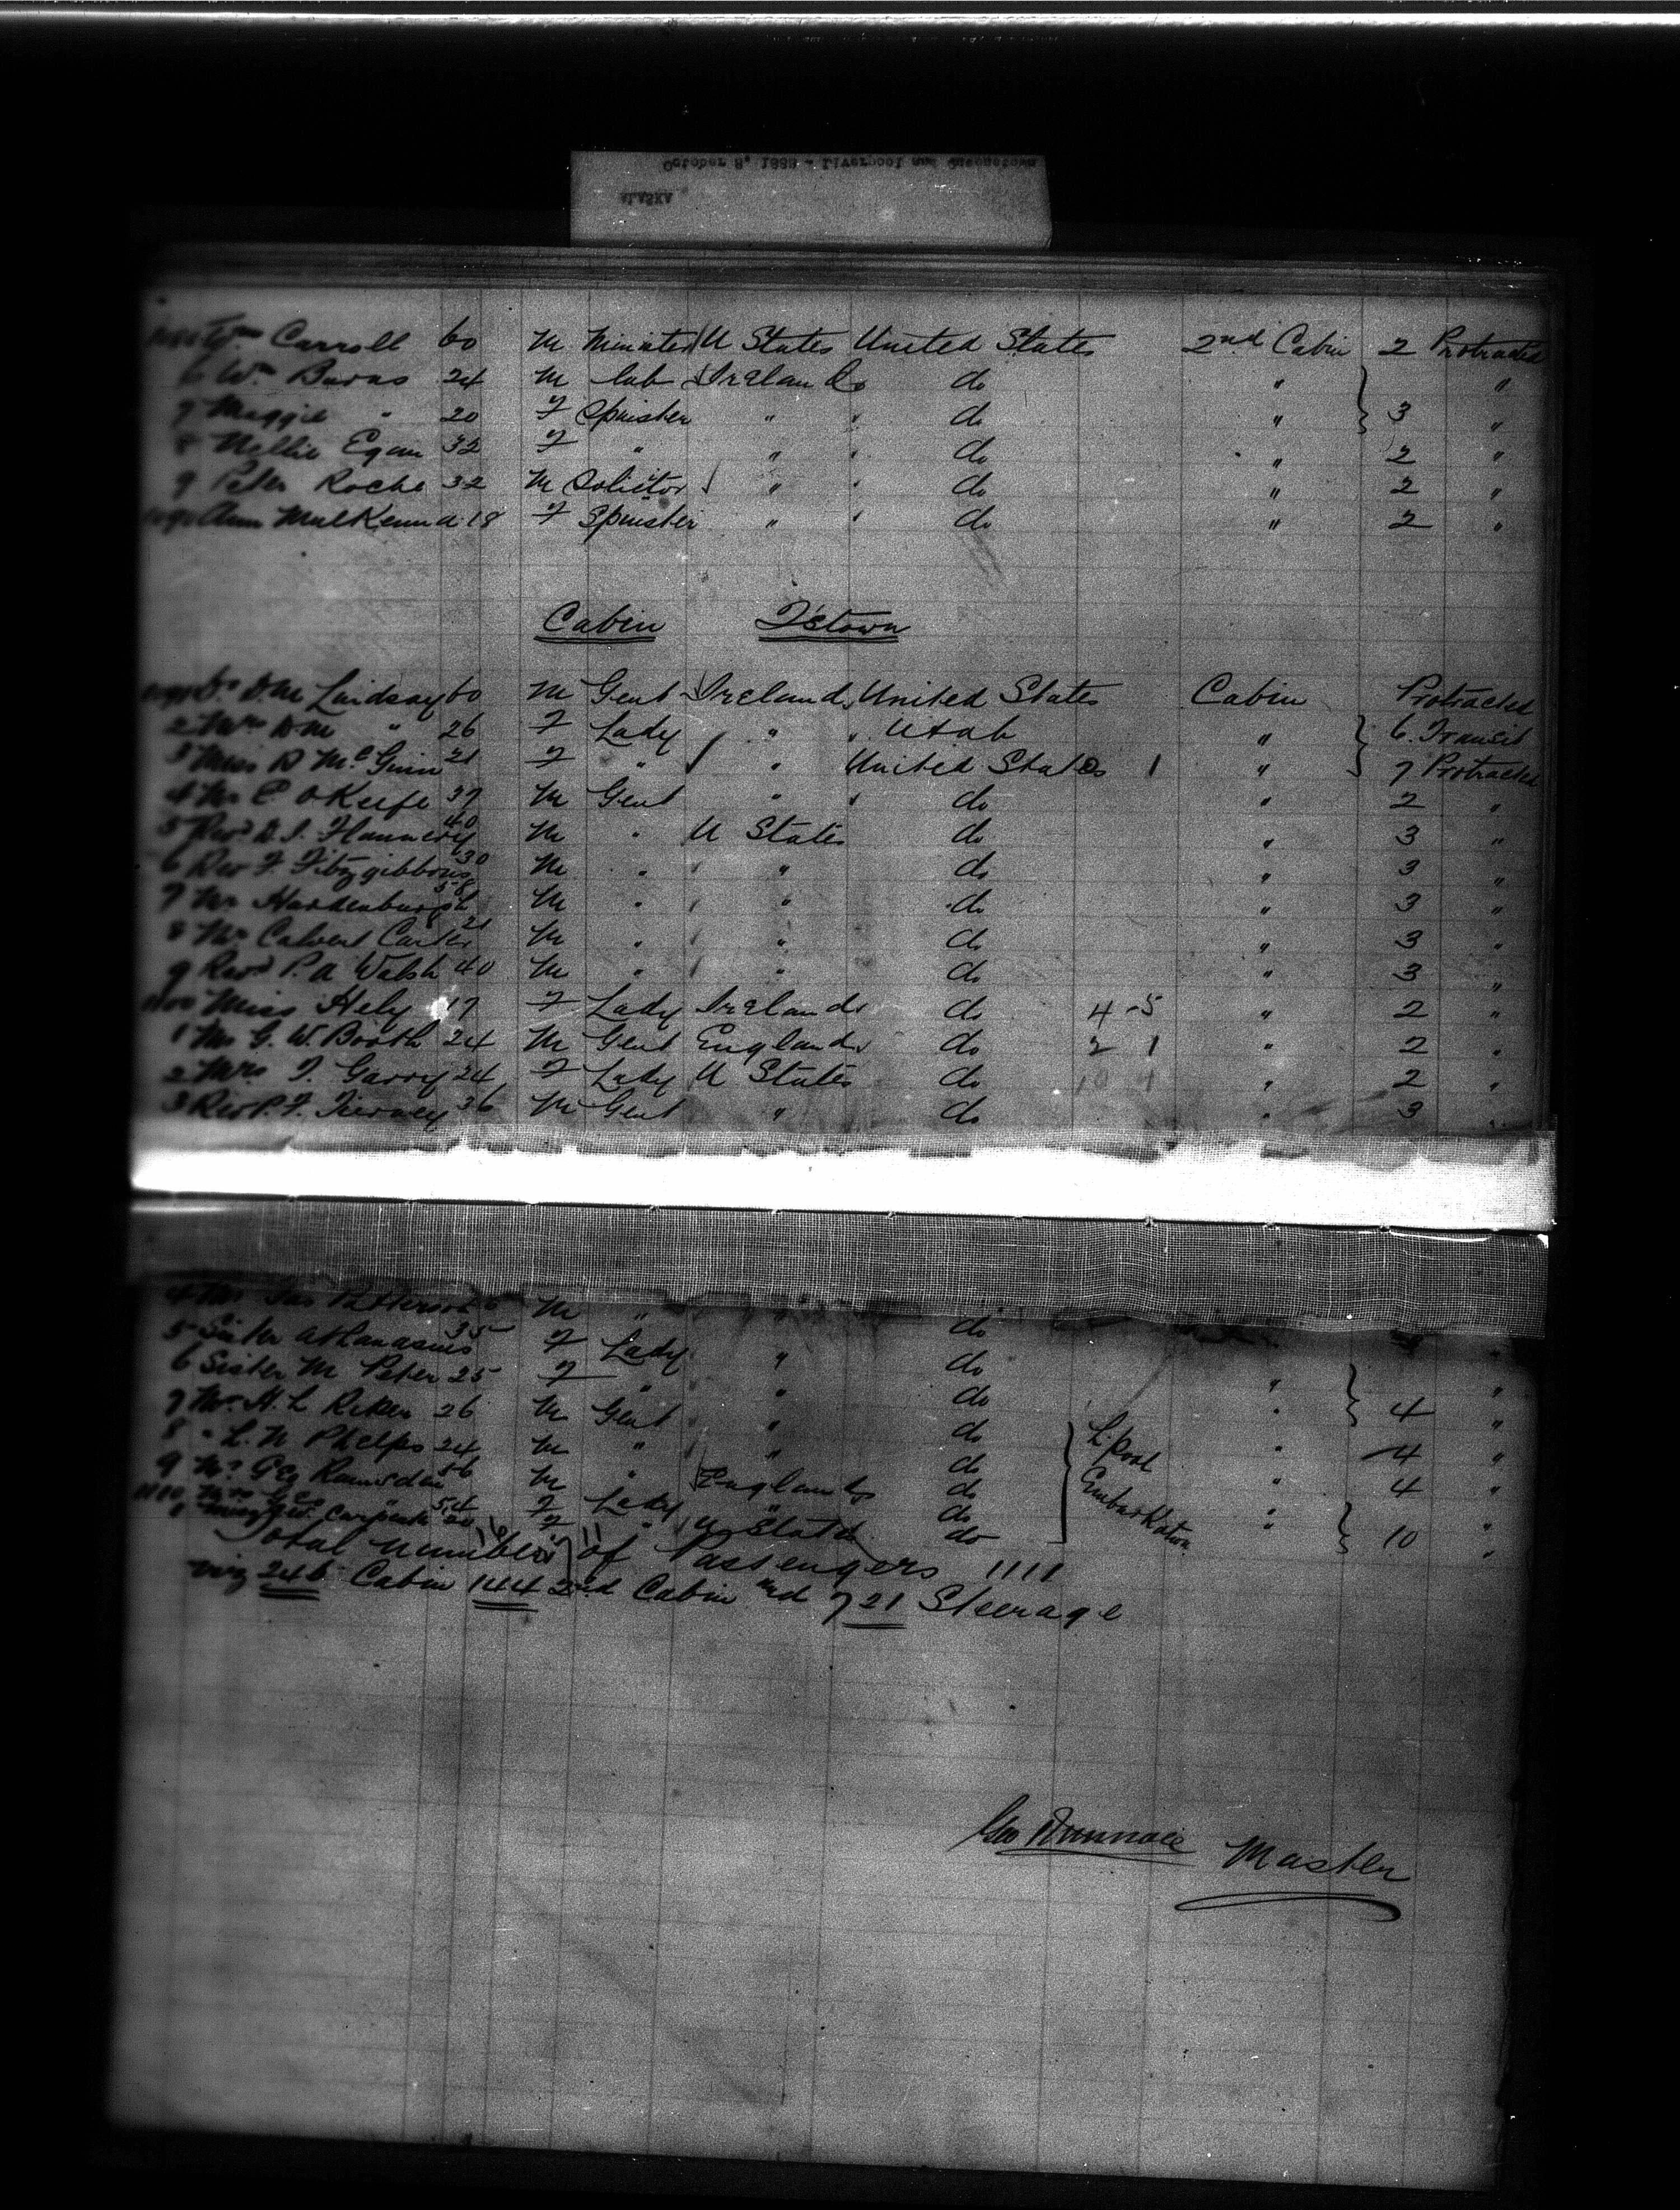 October 8, 1888 - Liverpool and Queenstown
ALASKA
Carroll 60 M Minister U States United States 2nd Cabin 2 Protracted
6 Wm Burns 24 M Lab Ireland do " "
7 Maggie " 20 F Spinster " " do " 3 "
8 Nellie Egan 32 F " " " do " 2 "
9 Peter Roche 32 M Solicitor " " do " 2 "
Ann MulKenna 18 F Spinster " " do " 2 "
Cabin Q'stown
D.M Lindsay 60 M Gent Ireland United States Cabin Protracted
2 Mrs D M " 26 F Lady " " Utah " 6 Transit
3 Miss B McGinn 21 F " " United States 1 " 7 Protracted
4 Mr C. OKeefe 37 M Gent " " do " 2 "
5 Revd D. J. Flannery 40 M " U States do " 3 "
6 Rev F. Fitzgibbons 30 M " " do " 3 "
7 Mr Hardenburgh 58 M " " do " 3 "
8 Mr Calvert Carter 21 M " " do " 3 "
9 Revd P. A Walsh 40 M " " do " 3 "
1100 Miss Hely 17 F Lady Ireland do 4-5 " 2 "
1 Mr G. W. Booth 24 M Gent England do 2 1 " 2 "
2 Mrs J. Garry 24 F Lady U States do " 2 "
3 Rev P. F. Tierney 36 M Gent " do " 3 "
4 Mr Jas M " " do
5 Sister Athanasius 35 F Lady " do "
6 Sister M Peter 25 F " " do " "
7 Mr H. L Riker 26 M Gent " do " 4 "
8 " L. N Phelps 24 M " " do L.pool " 4 "
9 Mr Geo Ramsden 56 M " England do Embarkation " 4 "
1110 Mrs Geo " 54 F Lady " do " "
1 Geo. Carpenter 20 F " U States do 10 "
Total number of Passengers 1111
viz 246 Cabin 144 2nd Cabin and 721 Steerage
Geo Master